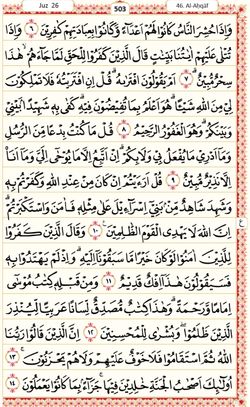 Juz 26 503 46. Al-Ahqāf
وَإِذَا حُشِرَ النَّاسُ كَانُوا لَهُمْ أَعْدَاءً وَكَانُوا بِعِبَادَتِهِمْ كَافِرِينَ ﴿٦﴾ وَإِذَا
تُتْلَىٰ عَلَيْهِمْ آيَاتُنَا بَيِّنَاتٍ قَالَ الَّذِينَ كَفَرُوا لِلْحَقِّ لَمَّا جَاءَهُمْ هَٰذَا
سِحْرٌ مُّبِينٌ ﴿٧﴾ أَمْ يَقُولُونَ افْتَرَاهُ ۖ قُلْ إِنِ افْتَرَيْتُهُ فَلَا تَمْلِكُونَ
لِي مِنَ اللَّهِ شَيْئًا ۖ هُوَ أَعْلَمُ بِمَا تُفِيضُونَ فِيهِ ۖ كَفَىٰ بِهِ شَهِيدًا بَيْنِي
وَبَيْنَكُمْ ۖ وَهُوَ الْغَفُورُ الرَّحِيمُ ﴿٨﴾ قُلْ مَا كُنتُ بِدْعًا مِّنَ الرُّسُلِ
وَمَا أَدْرِي مَا يُفْعَلُ بِي وَلَا بِكُمْ ۖ إِنْ أَتَّبِعُ إِلَّا مَا يُوحَىٰ إِلَيَّ وَمَا أَنَا
إِلَّا نَذِيرٌ مُّبِينٌ ﴿٩﴾ قُلْ أَرَأَيْتُمْ إِن كَانَ مِنْ عِندِ اللَّهِ وَكَفَرْتُم بِهِ
وَشَهِدَ شَاهِدٌ مِّن بَنِي إِسْرَائِيلَ عَلَىٰ مِثْلِهِ فَآمَنَ وَاسْتَكْبَرْتُمْ ۖ
إِنَّ اللَّهَ لَا يَهْدِي الْقَوْمَ الظَّالِمِينَ ﴿١٠﴾ وَقَالَ الَّذِينَ كَفَرُوا
لِلَّذِينَ آمَنُوا لَوْ كَانَ خَيْرًا مَّا سَبَقُونَا إِلَيْهِ ۚ وَإِذْ لَمْ يَهْتَدُوا بِهِ
فَسَيَقُولُونَ هَٰذَا إِفْكٌ قَدِيمٌ ﴿١١﴾ وَمِن قَبْلِهِ كِتَابُ مُوسَىٰ
إِمَامًا وَرَحْمَةً ۚ وَهَٰذَا كِتَابٌ مُّصَدِّقٌ لِّسَانًا عَرَبِيًّا لِّيُنذِرَ
الَّذِينَ ظَلَمُوا وَبُشْرَىٰ لِلْمُحْسِنِينَ ﴿١٢﴾ إِنَّ الَّذِينَ قَالُوا رَبُّنَا
اللَّهُ ثُمَّ اسْتَقَامُوا فَلَا خَوْفٌ عَلَيْهِمْ وَلَا هُمْ يَحْزَنُونَ ﴿١٣﴾
أُولَٰئِكَ أَصْحَابُ الْجَنَّةِ خَالِدِينَ فِيهَا جَزَاءً بِمَا كَانُوا يَعْمَلُونَ ﴿١٤﴾